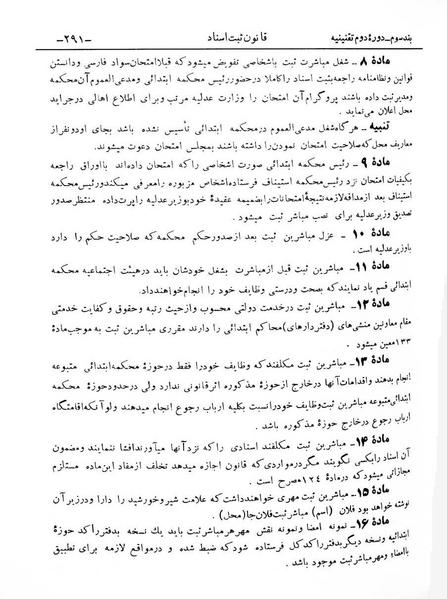 بند سوم ـ دورهٔ دوم تقنینیه
قانون ثبت اسناد
ـ ۲۹۱ ـ
مادهٔ ۸ ـ شغل مباشرت ثبت باشخاصی تفویض میشود که قبلا امتحان سواد فارسی ودانستن
قوانین ونظامنامه راجعه بثبت اسناد را کاملا درحضور رئیس محکمه ابتدائی ومدعی العموم آن محکمه
ومدیر ثبت داده باشند پروگرام آن امتحان را وزارت عدلیه مرتب وبرای اطلاع اهالی درجراید
محل اعلان می‌نماید .
تنبیه ـ هرگاه شغل مدعی العموم درمحکمه ابتدائی تأسیس نشده باشد بجای او دو نفر از
معاریف محل که صلاحیت امتحان نمودن را داشته باشند بمجلس امتحان دعوت میشوند.
مادهٔ ۹ ـ رئیس محکمه ابتدائی صورت اشخاصی را که امتحان داده‌اند با اوراق راجعه
بکیفیات امتحان نزد رئیس محکمه استیناف فرستاده اشخاص مزبوره را معرفی میکند و رئیس محکمه
استیناف بعد از مداقه لازمه نتیجهٔ امتحانات را بضمیمه عقیدهٔ خود بوزیر عدلیه راپرت داده منتظر صدور
تصدیق وزیر عدلیه برای نصب مباشر ثبت میشود .
مادهٔ ۱۰ ـ عزل مباشرین ثبت بعد از صدور حکم محکمه که صلاحیت حکم را دارد
با وزیر عدلیه است .
مادهٔ ۱۱ ـ مباشرین ثبت قبل از مباشرت بشغل خودشان باید در هیئت اجتماعیه محکمه
ابتدائی قسم یاد نمایند که بصحت ودرستی وظایف خود را انجام خواهند داد.
مادهٔ ۱۲ ـ مباشرین ثبت درخدمت دولتی محسوب وازحیث رتبه وحقوق و کفایت خدمتی
مقام معاونین منشی‌های (دفتردارهای) محاکم ابتدائی را دارند مقرری مباشرین ثبت به موجب مادهٔ
۱۳۳ معین میشود .
مادهٔ ۱۳ ـ مباشرین ثبت مکلفند که وظایف خود را فقط درحوزهٔ محکمه ابتدائی متبوعه
انجام بدهند واقدامات آنها درخارج ازحوزهٔ مذکوره اثر قانونی ندارد ولی درحدود حوزهٔ محکمه
ابتدائی متبوعه مباشرین ثبت وظایف خود را نسبت بکلیه ارباب رجوع انجام میدهند ولو آنکه اقامتگاه
ارباب رجوع خارج از حوزهٔ مذکوره باشد .
مادهٔ ۱۴ ـ مباشرین ثبت مکلفند اسنادی را که نزد آنها میآورند افشا ننمایند ومضمون
آن اسناد را بکسی نگویند مگر درمواردی که قانون اجازه میدهد تخلف از مفاد این ماده مستلزم
مجازاتی میشود که درمادهٔ ۱۲۴ مصرح است .
مادهٔ ۱۵ ـ مباشرین ثبت مهری خواهند داشت که علامت شیر وخورشید را دارد ودر زیر آن
نوشته خواهد بود فلان (اسم) مباشر ثبت فلان جا (محل) .
مادهٔ ۱۶ ـ نمونه امضا ونمونه نقش مهر هر مباشر ثبت باید یك نسخه بدفتر راکد حوزهٔ
ابتدائیه ونسخه دیگر بدفتر راکد کل فرستاده شود که ضبط شده و درمواقع لازمه برای تطبیق
با امضاء ومهر مباشر ثبت موجود باشد .